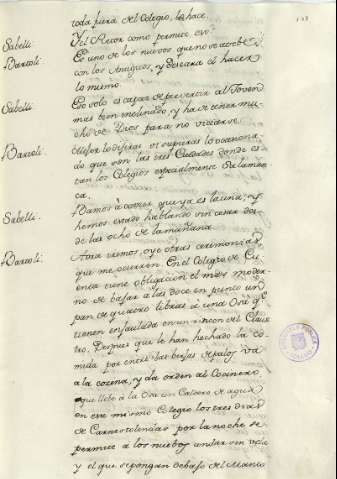 toda furia del Colegio, lo hace.
Sabelli Y el Rector como permite eso?
Barzoli. Es uno de los nuevos que no se atreve
con los Antiguos, y deseara el hacer
lo mismo.
Sabelli Eso solo es capaz de pervertir al Joven
mas bien inclinado, y ha de tener mu-
cho de Dios para no viciarse.
Barzoli. Mejor lo dijeras si supieras lo ocasiona-
do que son las tres Ciudades donde es-
tan los Colegios especialmente Salaman-
ca.
Sabelli. Vamos à comer que ya es la una, y
hemos estado hablando sin cesar des-
de las ocho de la mañana.
Barzoli. Aora vamos, oye otras ceremonias
que me ocurren. En el Colegio de Cu-
enca tiene obligacion el mas moder-
no de bajar a las doce en punto un
pan de quatro libras à una Osa qe.
tienen enjaulada en un rincon del Claus-
tro. Despues que le han hechado la co-
mida por entre las berjas de palos va
a la cocina, y da orden al Cocinero
que llebe à la Osa un Caldero de agua
en este mismo Colegio los tres dias
de Carnestolendas por la noche se
permite a los nuebos andar sin
y el que se pongan debajo del Manto